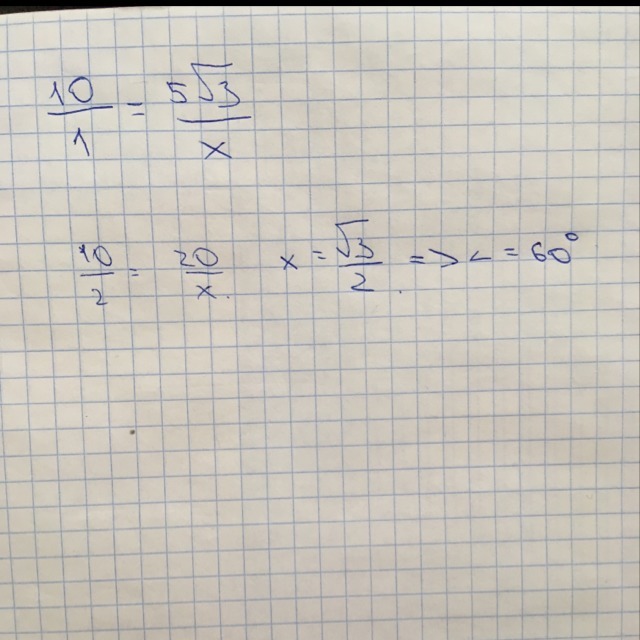 10/1 = 5√3/x
10/2 = 20/x. x = √3/2. => ∠ = 60°